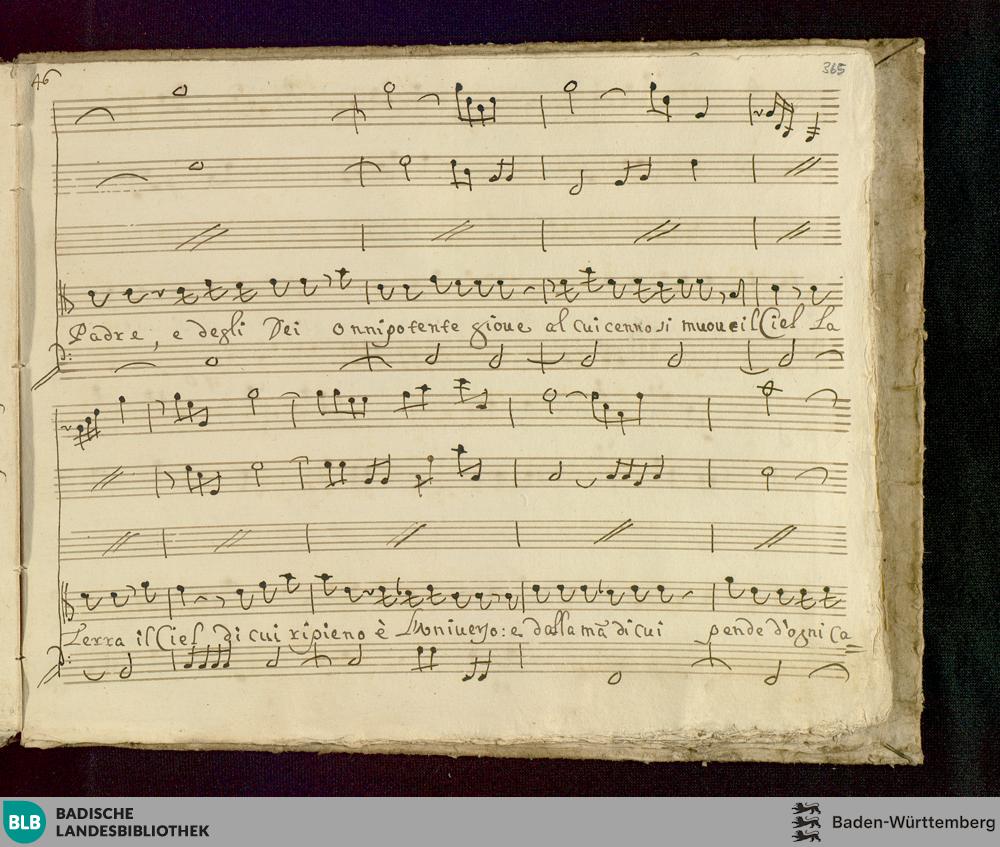 46
365
Padre, e degli Dei onnipotente gioue al cui cenno si muoue il Ciel La
Terra il Ciel di cui ripieno è L'vniuerso: e dalla mã di cui pende d'ogni Ca=
BLB BADISCHE LANDESBIBLIOTHEK
Baden-Württemberg